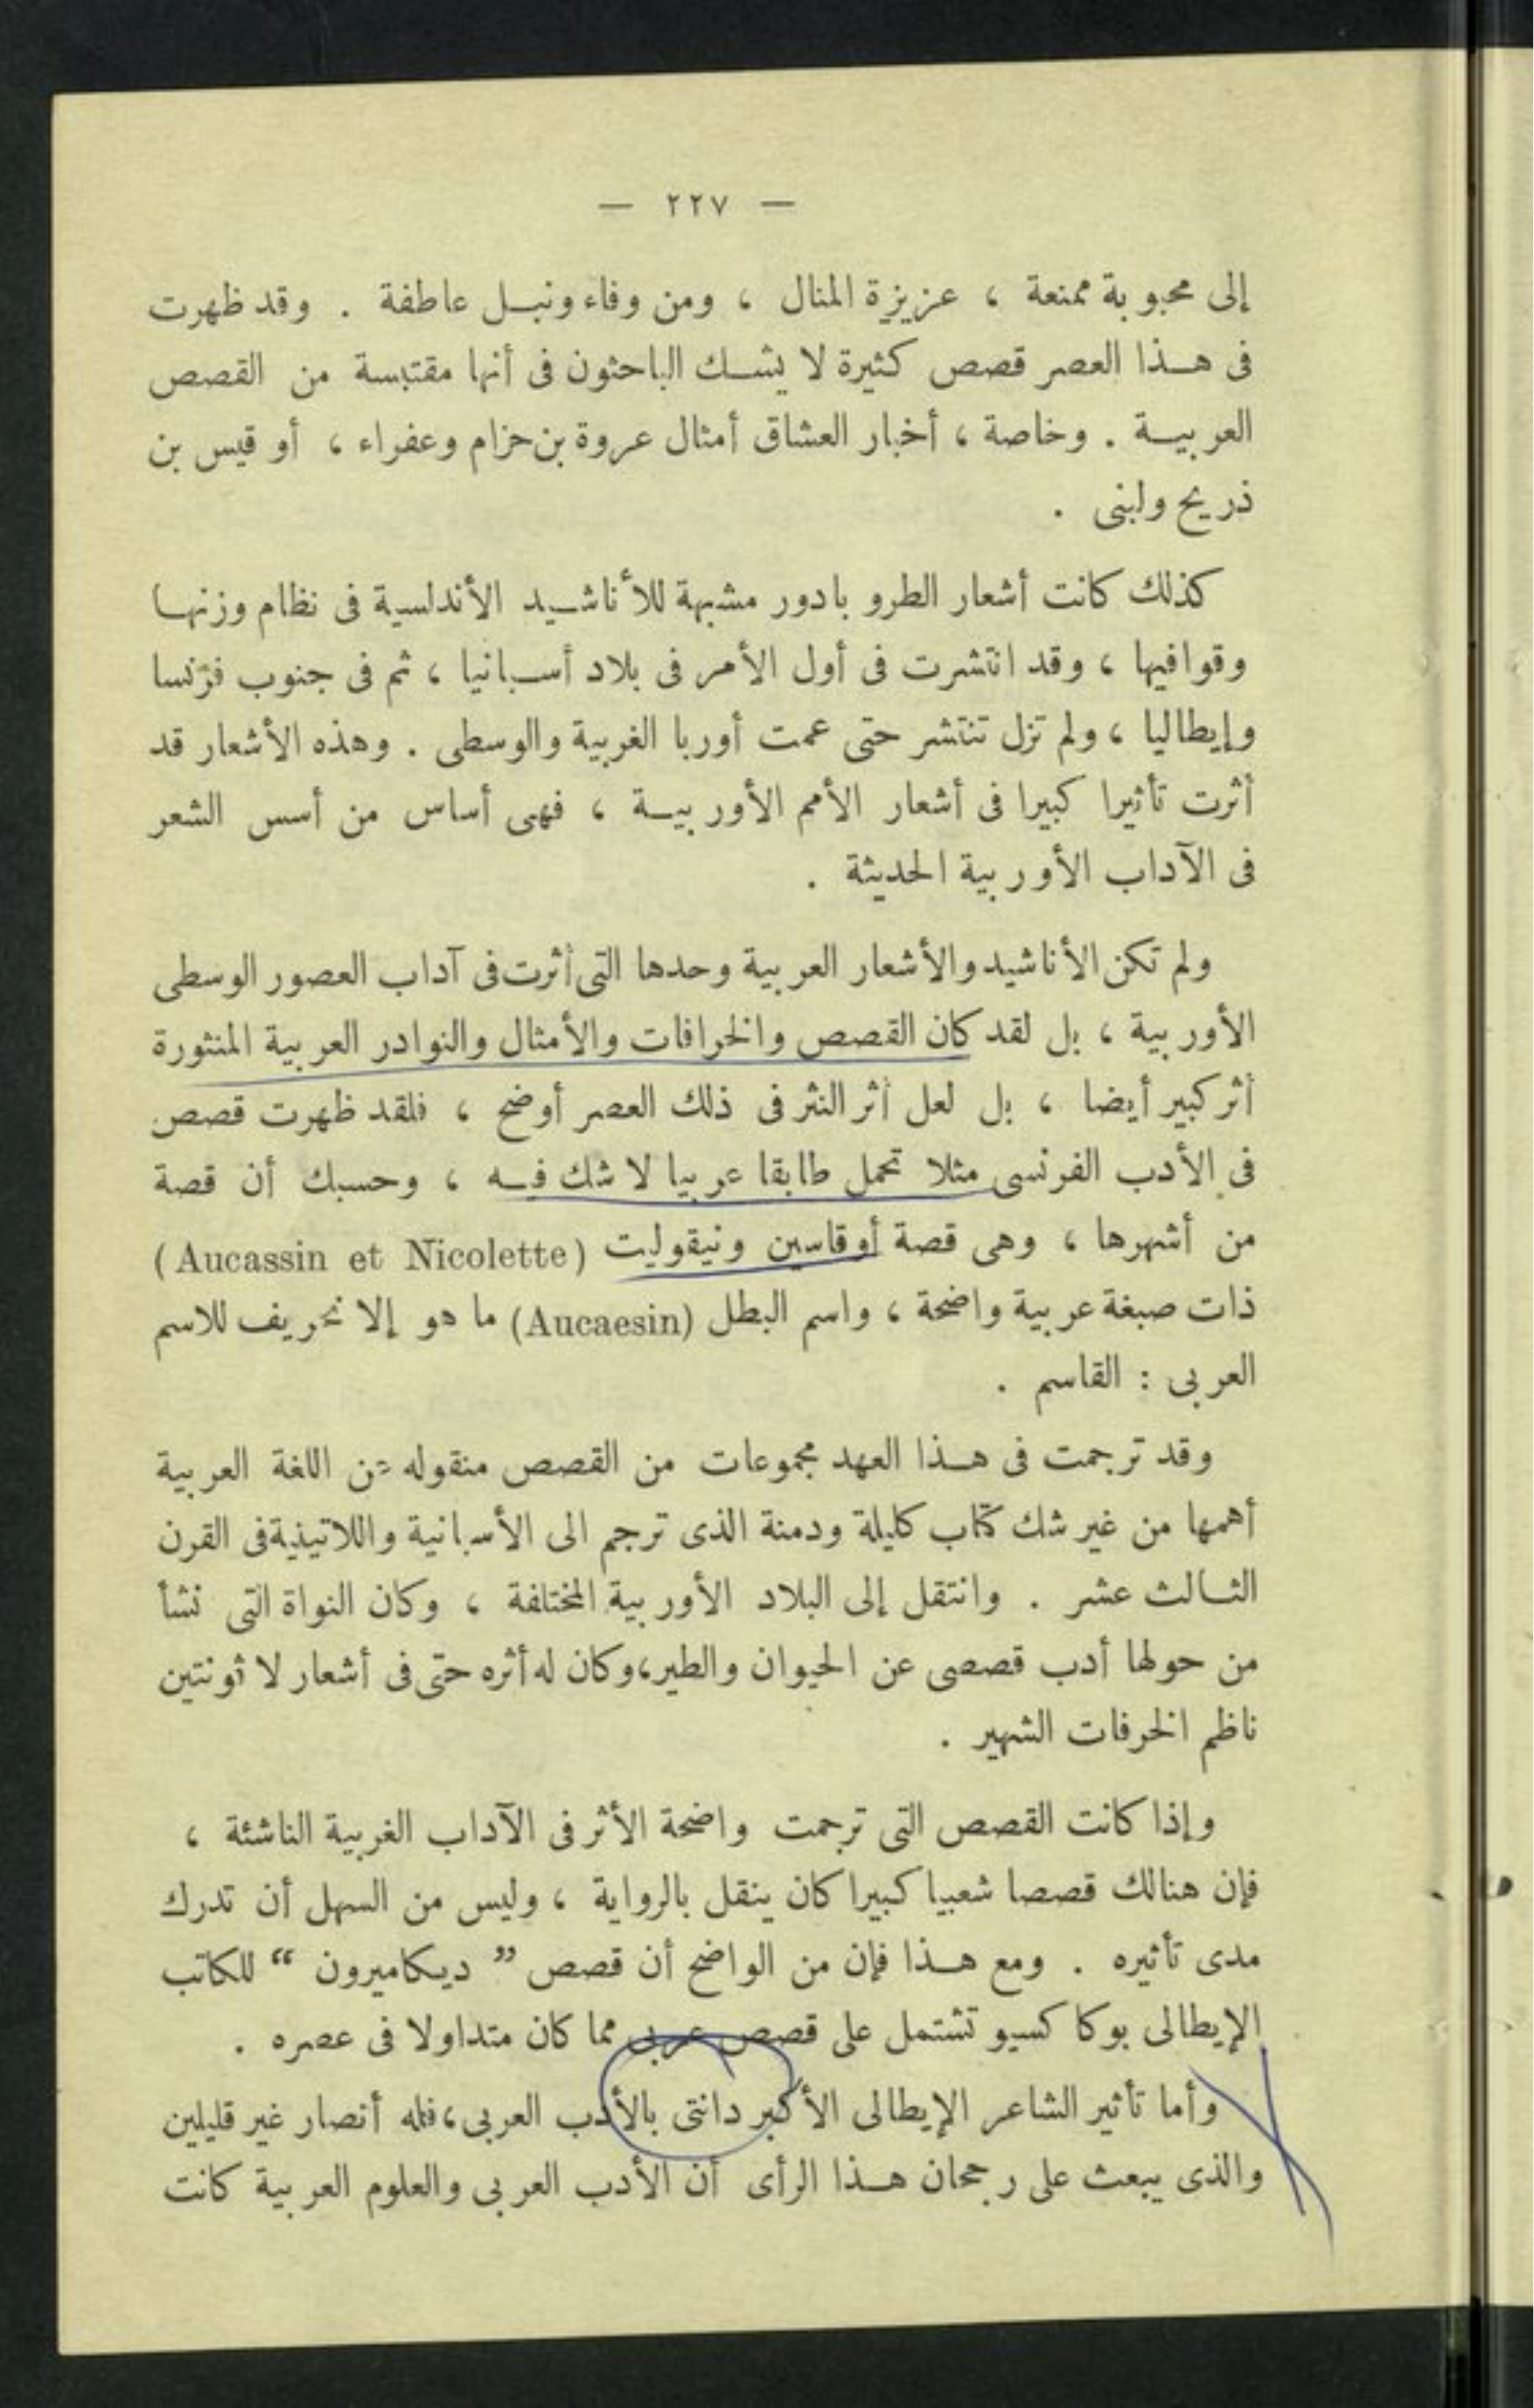 — ٢٢٧ —
إلى محبوبة ممنعة ، عزيزة المنال ، ومن وفاء ونبل عاطفة . وقد ظهرت
فى هذا العصر قصص كثيرة لا يشك الباحثون فى أنها مقتبسة من القصص
العربية . وخاصة ، أخبار العشاق أمثال عروة بن حزام وعفراء ، أو قيس بن
ذريح ولبنى .
كذلك كانت أشعار الطروبادور مشبهة للأناشيد الأندلسية فى نظام وزنها
وقوافيها ، وقد انتشرت فى أول الأمر فى بلاد أسبانيا ، ثم فى جنوب فرنسا
وإيطاليا ، ولم تزل تنتشر حتى عمت أوربا الغربية والوسطى . وهذه الأشعار قد
أثرت تأثيرا كبيرا فى أشعار الأمم الأوربية ، فهى أساس من أسس الشعر
فى الآداب الأوربية الحديثة .
ولم تكن الأناشيد والأشعار العربية وحدها التى أثرت فى آداب العصور الوسطى
الأوربية ، بل لقد كان القصص والخرافات والأمثال والنوادر العربية المنثورة
أثر كبير أيضا ، بل لعل أثر النثر فى ذلك العصر أوضح ، فلقد ظهرت قصص
فى الأدب الفرنسى مثلا تحمل طابقا عربيا لا شك فيه ، وحسبك أن قصة
من أشهرها ، وهى قصة أوقاسين ونيقوليت (Aucassin et Nicolette)
ذات صبغة عربية واضحة ، واسم البطل (Aucaesin) ما هو إلا تحريف للاسم
العربى : القاسم .
وقد ترجمت فى هذا العهد مجموعات من القصص منقوله من اللغة العربية
أهمها من غير شك كتاب كليلة ودمنة الذى ترجم الى الأسبانية واللاتينية فى القرن
الثالث عشر . وانتقل إلى البلاد الأوربية المختلفة ، وكان النواة التى نشأ
من حولها أدب قصصى عن الحيوان والطير، وكان له أثره حتى فى أشعار لا ثونتين
ناظم الخرفات الشهير .
وإذا كانت القصص التى ترجمت واضحة الأثر فى الآداب الغربية الناشئة ،
فإن هنالك قصصا شعبيا كبيرا كان ينقل بالرواية ، وليس من السهل أن تدرك
مدى تأثيره . ومع هذا فإن من الواضح أن قصص ” ديكاميرون “ للكاتب
الإيطالى بوكا كسيو تشتمل على قصص عربى مما كان متداولا فى عصره .
وأما تأثير الشاعر الإيطالى الأكبر دانتى بالأدب العربى، فله أنصار غير قليلين
والذى يبعث على رجحان هذا الرأى أن الأدب العربى والعلوم العربية كانت